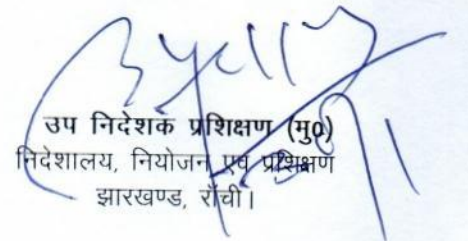 उप निदेशक प्रशिक्षण (मु0)
निदेशालय, नियोजन एवं प्रशिक्षण
झारखण्ड, राँची।